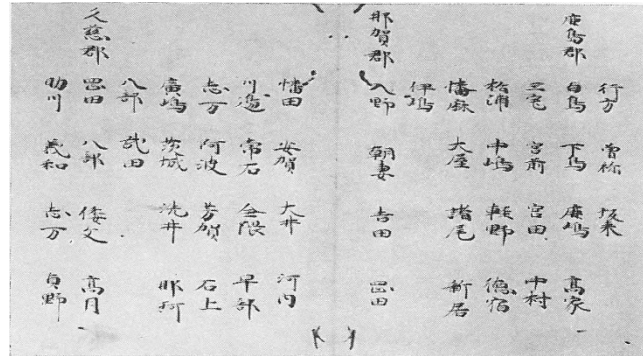 行方 曽祢 坂来
鹿島郡 白鳥 下鳥 鹿嶋 高家
三宅 宮前 宮田 中村
松浦 中嶋 軽野 徳宿
幡麻 大屋 諸尾 新居
伊嶋
那賀郡 入野 朝妻 吉田 罡田
幡田 安賀 大井 河内
川邊 常石 全隈 早部
志万 阿波 芳賀 石上
廣嶋 茨城 洗井 那珂
八部 武田
久慈郡 罡田 八部 倭文 高月
助川 義和 志万 真野